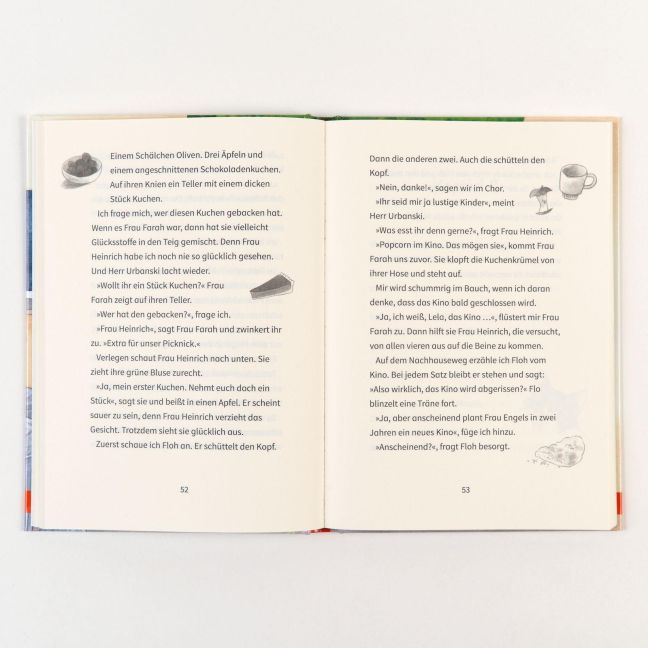 Einem Schälchen Oliven. Drei Äpfeln und
einem angeschnittenen Schokoladenkuchen.
Auf ihren Knien ein Teller mit einem dicken
Stück Kuchen.
Ich frage mich, wer diesen Kuchen gebacken hat.
Wenn es Frau Farah war, dann hat sie vielleicht
Glücksstoffe in den Teig gemischt. Denn Frau
Heinrich habe ich noch nie so glücklich gesehen.
Und Herr Urbanski lacht wieder.
»Wollt ihr ein Stück Kuchen?« Frau
Farah zeigt auf ihren Teller.
»Wer hat den gebacken?«, frage ich.
»Frau Heinrich«, sagt Frau Farah und zwinkert ihr
zu. »Extra für unser Picknick.«
Verlegen schaut Frau Heinrich nach unten. Sie
zieht ihre grüne Bluse zurecht.
»Ja, mein erster Kuchen. Nehmt euch doch ein
Stück«, sagt sie und beißt in einen Apfel. Er scheint
sauer zu sein, denn Frau Heinrich verzieht das
Gesicht. Trotzdem sieht sie glücklich aus.
Zuerst schaue ich Floh an. Er schüttelt den Kopf.
52
Dann die anderen zwei. Auch die schütteln den
Kopf.
»Nein, danke!«, sagen wir im Chor.
»Ihr seid mir ja lustige Kinder«, meint
Herr Urbanski.
»Was esst ihr denn gerne?«, fragt Frau Heinrich.
»Popcorn im Kino. Das mögen sie«, kommt Frau
Farah uns zuvor. Sie klopft die Kuchenkrümel von
ihrer Hose und steht auf.
Mir wird schummrig im Bauch, wenn ich daran
denke, dass das Kino bald geschlossen wird.
»Ja, ich weiß, Lela, das Kino …«, flüstert mir Frau
Farah zu. Dann hilft sie Frau Heinrich, die versucht,
von allen vieren aus auf die Beine zu kommen.
Auf dem Nachhauseweg erzähle ich Floh vom
Kino. Bei jedem Satz bleibt er stehen und sagt:
»Also wirklich, das Kino wird abgerissen?« Flo
blinzelt eine Träne fort.
»Ja, aber anscheinend plant Frau Engels in zwei
Jahren ein neues Kino«, füge ich hinzu.
»Anscheinend?«, fragt Floh besorgt.
53